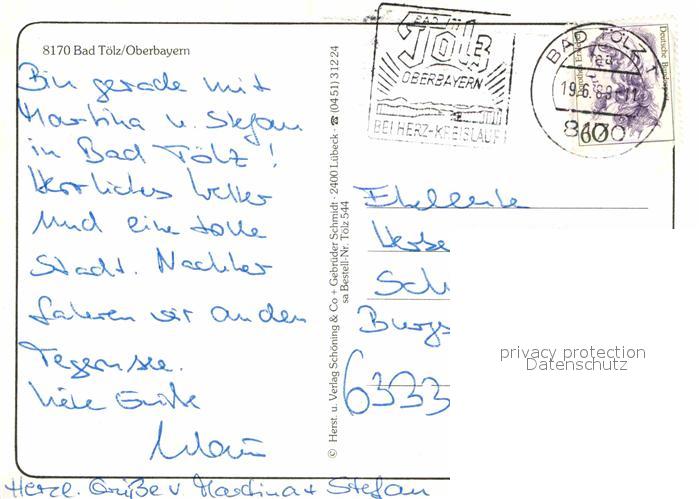 8170 Bad Tölz/Oberbayern
BAD TÖLZ
OBERBAYERN
BEI HERZ-KREISLAUF
BAD TÖLZ 1
19.6.88-11
8170
60
Deutsche Bundespost
Bin gerade mit
Martina u. Stefan
in Bad Tölz!
Herrliches Wetter
und eine tolle
Stadt. Nachher
fahren wir an den
Tegernsee.
Viele Grüße
Herzl. Grüße v Martina + Stefan
© Herst. u. Verlag Schöning & Co + Gebrüder Schmidt · 2400 Lübeck · ☎ (0451) 31224
sa Bestell-Nr. Tölz 544
Eheleute
Sch
Burgs
6333
privacy protection
Datenschutz